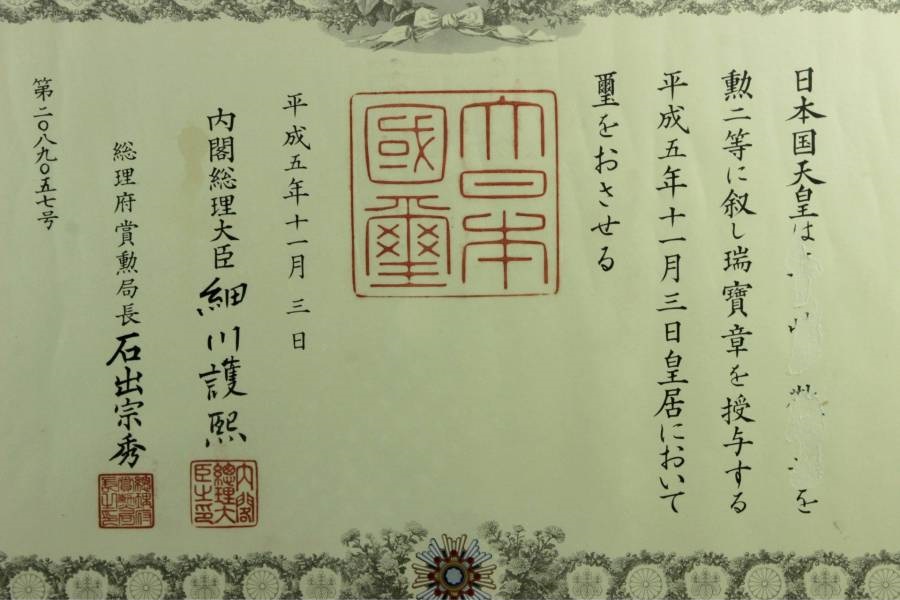 日本国天皇は を
勲二等に叙し瑞寶章を授与する
平成五年十一月三日皇居において
璽をおさせる
大日本
國璽
平成五年十一月三日
内閣総理大臣 細川護熙
内閣
總理大
臣之印
総理府賞勲局長 石出宗秀
第二〇八九〇五七号